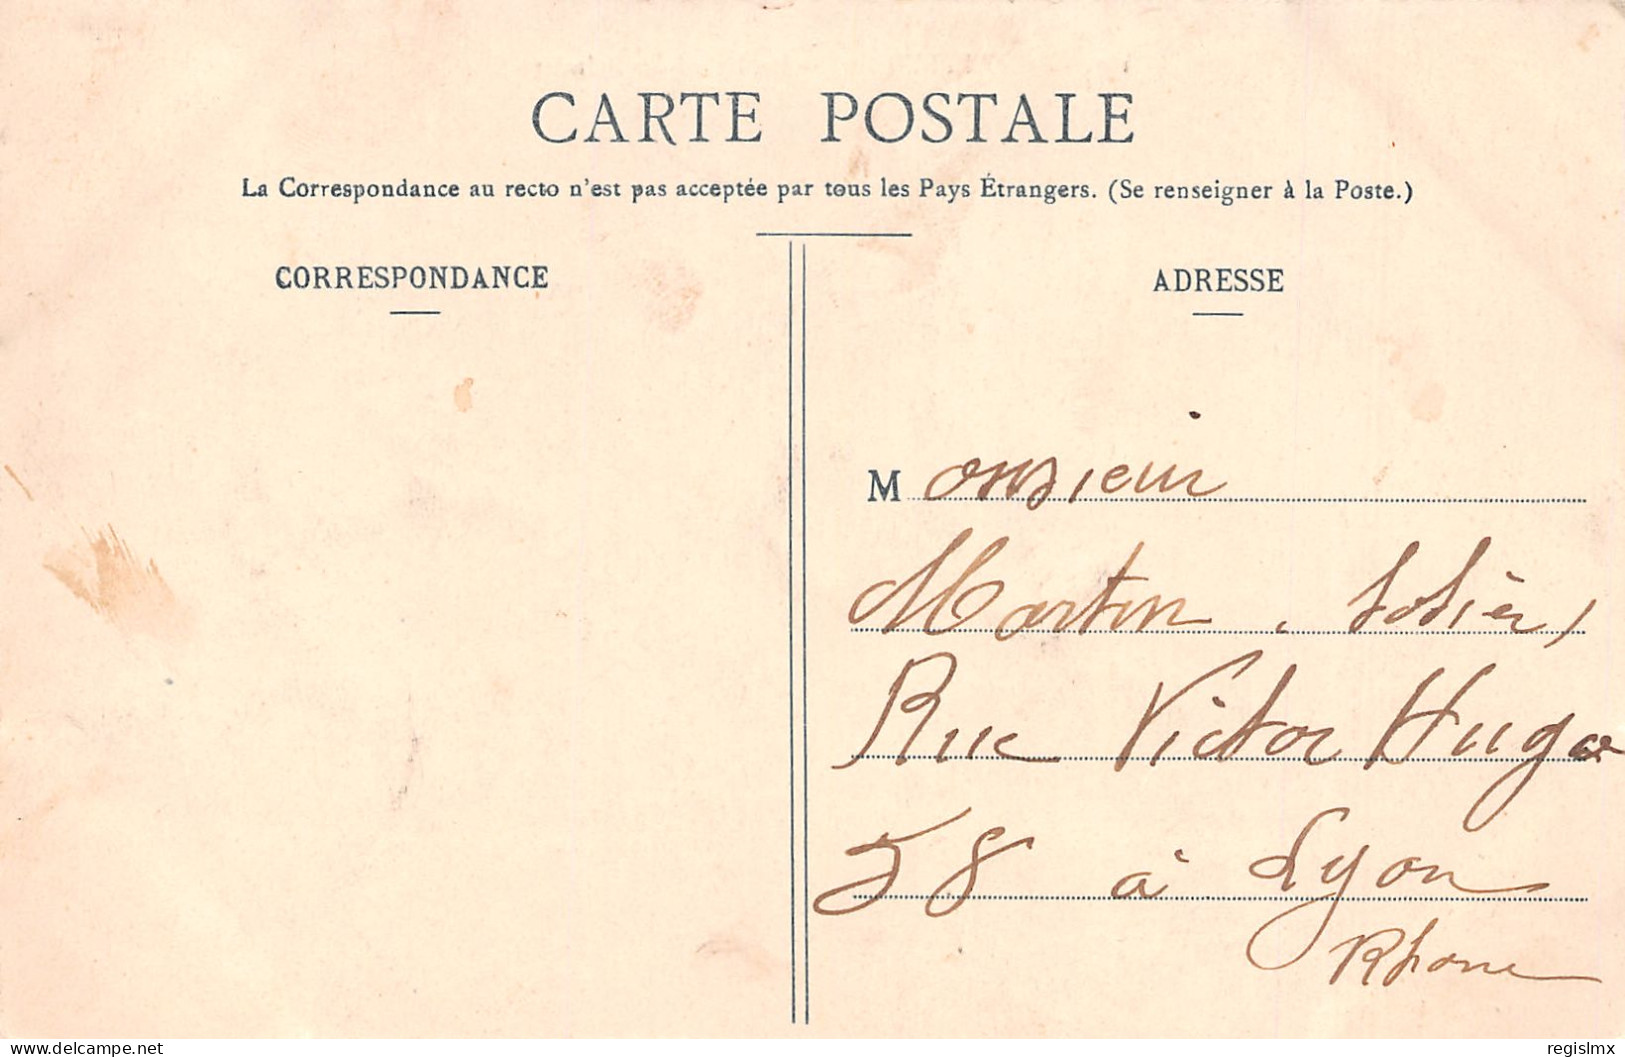 CARTE POSTALE
La Correspondance au recto n'est pas acceptée par tous les Pays Étrangers. (Se renseigner à la Poste.)
CORRESPONDANCE
ADRESSE
Monsieur
Martin
Rue Victor Hugo
58 à Lyon
Rhone
delcampe.net
regislmx